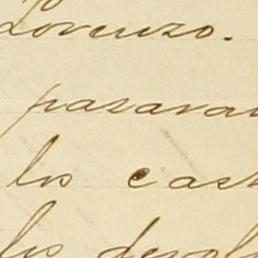 Lorenzo.
pasarau
los cast
los devol